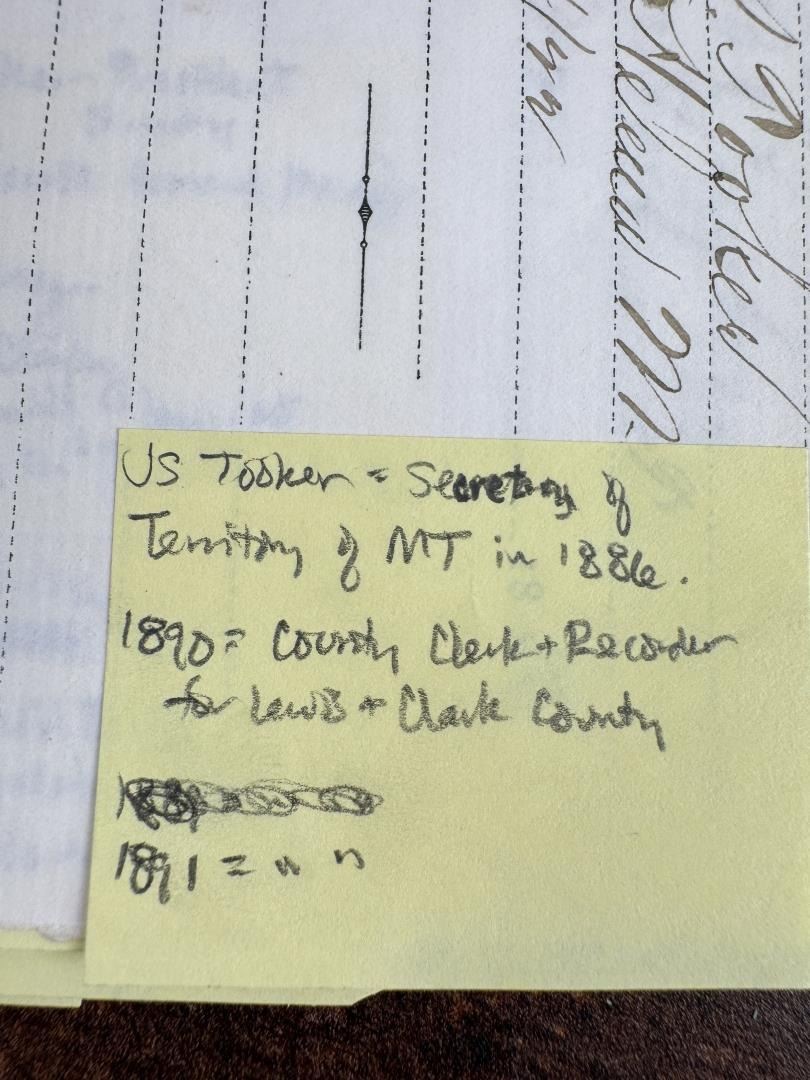 Tooker
Helena M.
US Tooker = Secretary of
Territory of MT in 1886.
1890 = County Clerk + Recorder
for Lewis + Clark County
1891 = " "